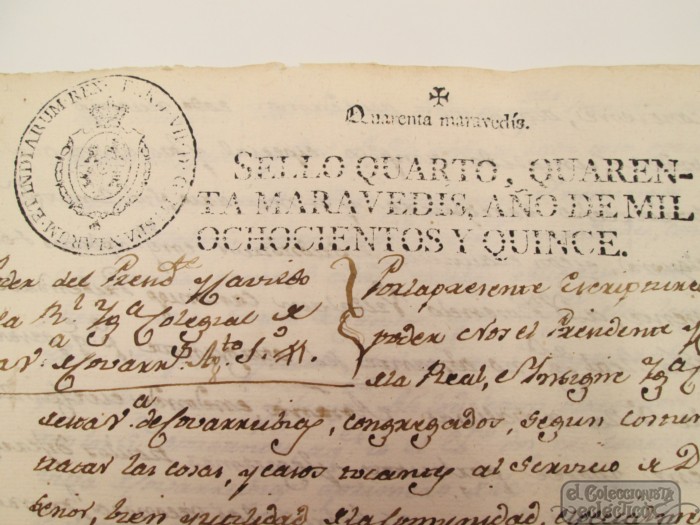 HISPANIARUM ET INDIARUM REX. FERD. VII. D. G.
Quarenta maravedís.
SELLO QUARTO, QUAREN-
TA MARAVEDIS, AÑO DE MIL
OCHOCIENTOS Y QUINCE.
oder del Presid.te y Cavildo
la R.l Yg.a Colegial de
Por la presente Escriptura
poder Nos el Presidente y
de la Real, e Insigne Yg.a C
de esta V.a de Covarrubias, congregados, segun costum
tratar las cosas, y casos tocantes al servicio de D
señor, bien y utilidad de la Comunidad
el Coleccionista
eclectico